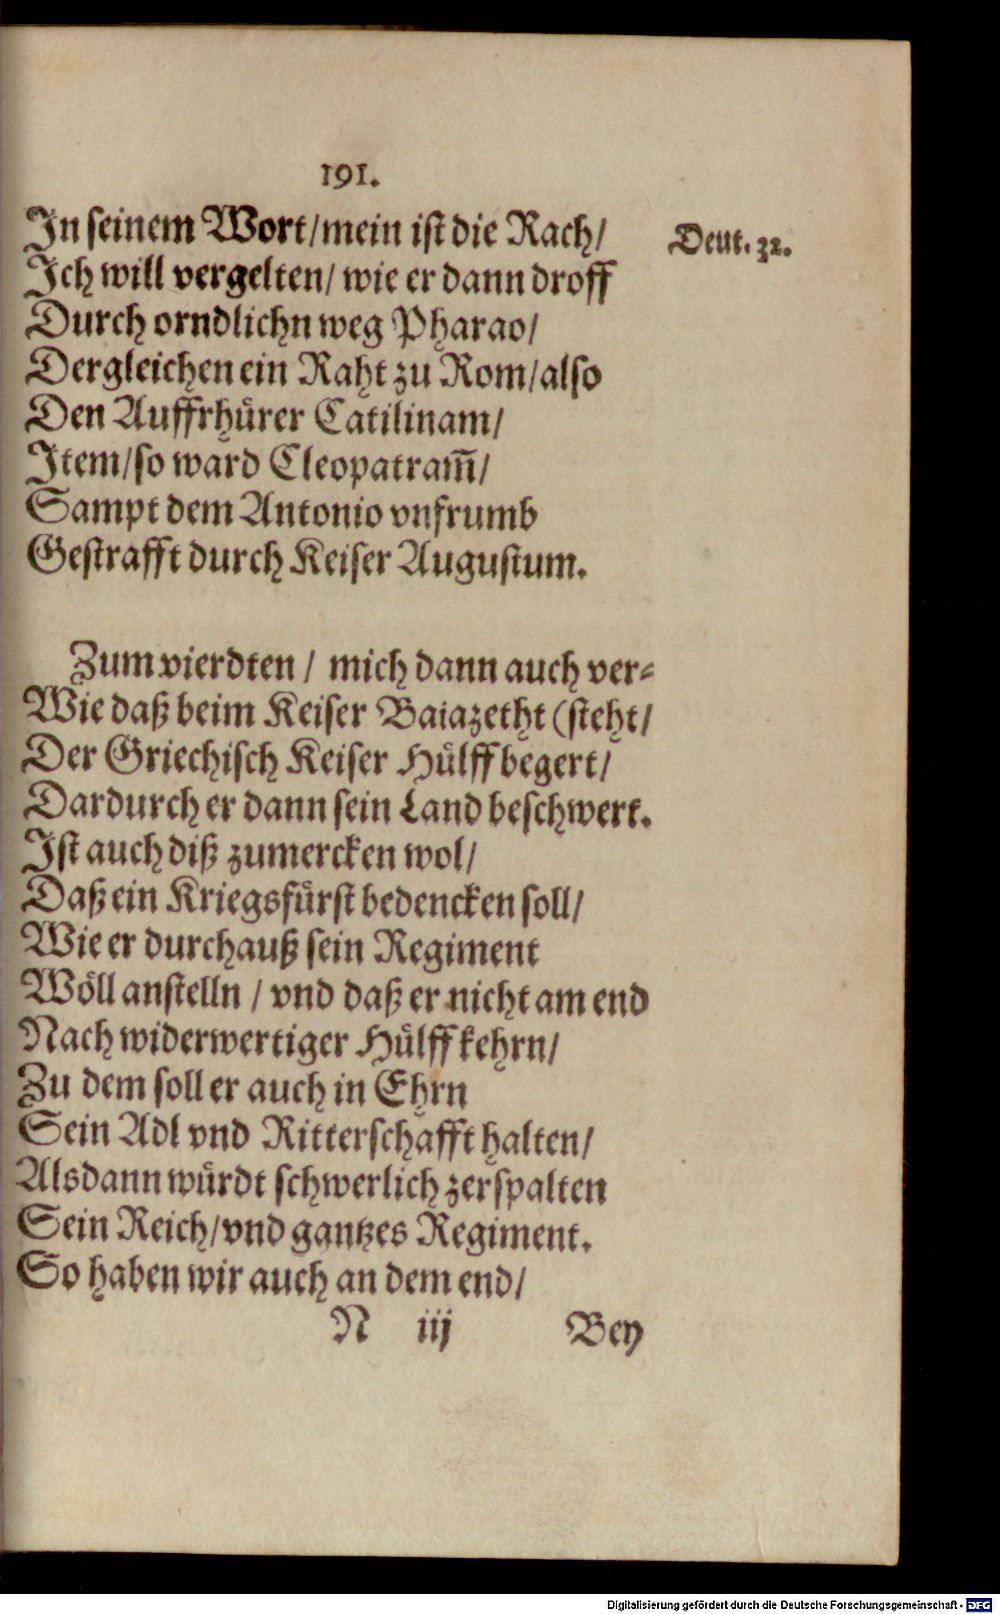 191.
In seinem Wort/mein ist die Rach/
Deut. 32.
Ich will vergelten/ wie er dann droff
Durch orndlichn weg Pharao/
Dergleichen ein Raht zu Rom/also
Den Auffrhuͤrer Catilinam/
Item/so ward Cleopatram̅/
Sampt dem Antonio vnfrumb
Gestrafft durch Keiser Augustum.
Zum vierdten/ mich dann auch ver-
Wie daß beim Keiser Baiazetht (steht/
Der Griechisch Keiser Huͤlff begert/
Dardurch er dann sein Land beschwert.
Ist auch diß zumercken wol/
Daß ein Kriegsfuͤrst bedencken soll/
Wie er durchauß sein Regiment
Woͤll anstelln / vnd daß er nicht am end
Nach widerwertiger Huͤlff kehrn/
Zu dem soll er auch in Ehrn
Sein Adl vnd Ritterschafft halten/
Alsdann wuͤrdt schwerlich zerspalten
Sein Reich/vnd gantzes Regiment.
So haben wir auch an dem end/
N iij Bey
Digitalisierung gefördert durch die Deutsche Forschungsgemeinschaft - DFG